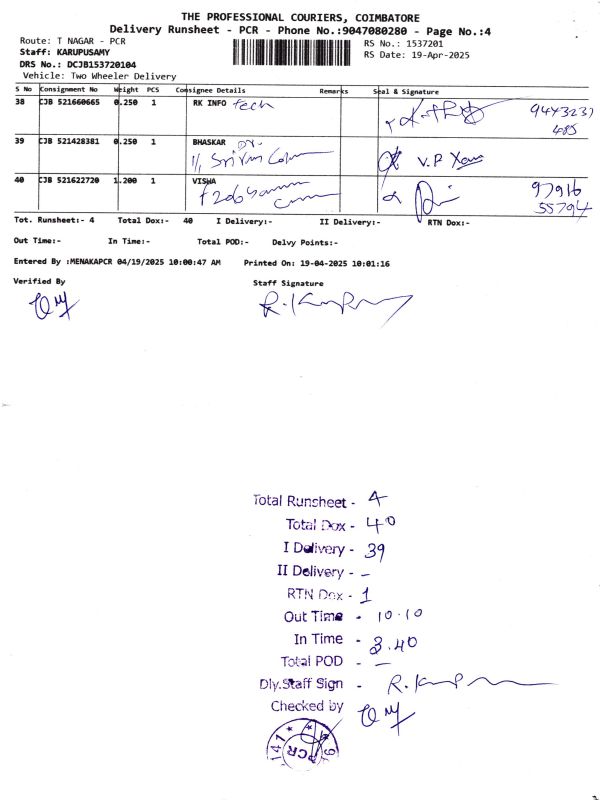 THE PROFESSIONAL COURIERS, COIMBATORE
Delivery Runsheet - PCR - Phone No.:9047080280 - Page No.:4
Route: T NAGAR - PCR
RS No.: 1537201
Staff: KARUPUSAMY
RS Date: 19-Apr-2025
DRS No.: DCJB153720104
Vehicle: Two Wheeler Delivery
S No Consignment No Weight PCS Consignee Details Remarks Seal & Signature
38 CJB 521660665 0.250 1 RK INFO tech 9443237
485
39 CJB 521428381 0.250 1 BHASKAR Dr.
11, V.P
40 CJB 521622720 1.200 1 VISHA 97916
55794
Tot. Runsheet:- 4 Total Dox:- 40 I Delivery:- II Delivery:- RTN Dox:-
Out Time:- In Time:- Total POD:- Delvy Points:-
Entered By :MENAKAPCR 04/19/2025 10:00:47 AM Printed On: 19-04-2025 10:01:16
Verified By Staff Signature
Total Runsheet - 4
Total Dox - 40
I Delivery - 39
II Delivery - -
RTN Dox - 1
Out Time - 10.10
In Time - 3.40
Total POD - -
Dly.Staff Sign -
Checked by
PCR